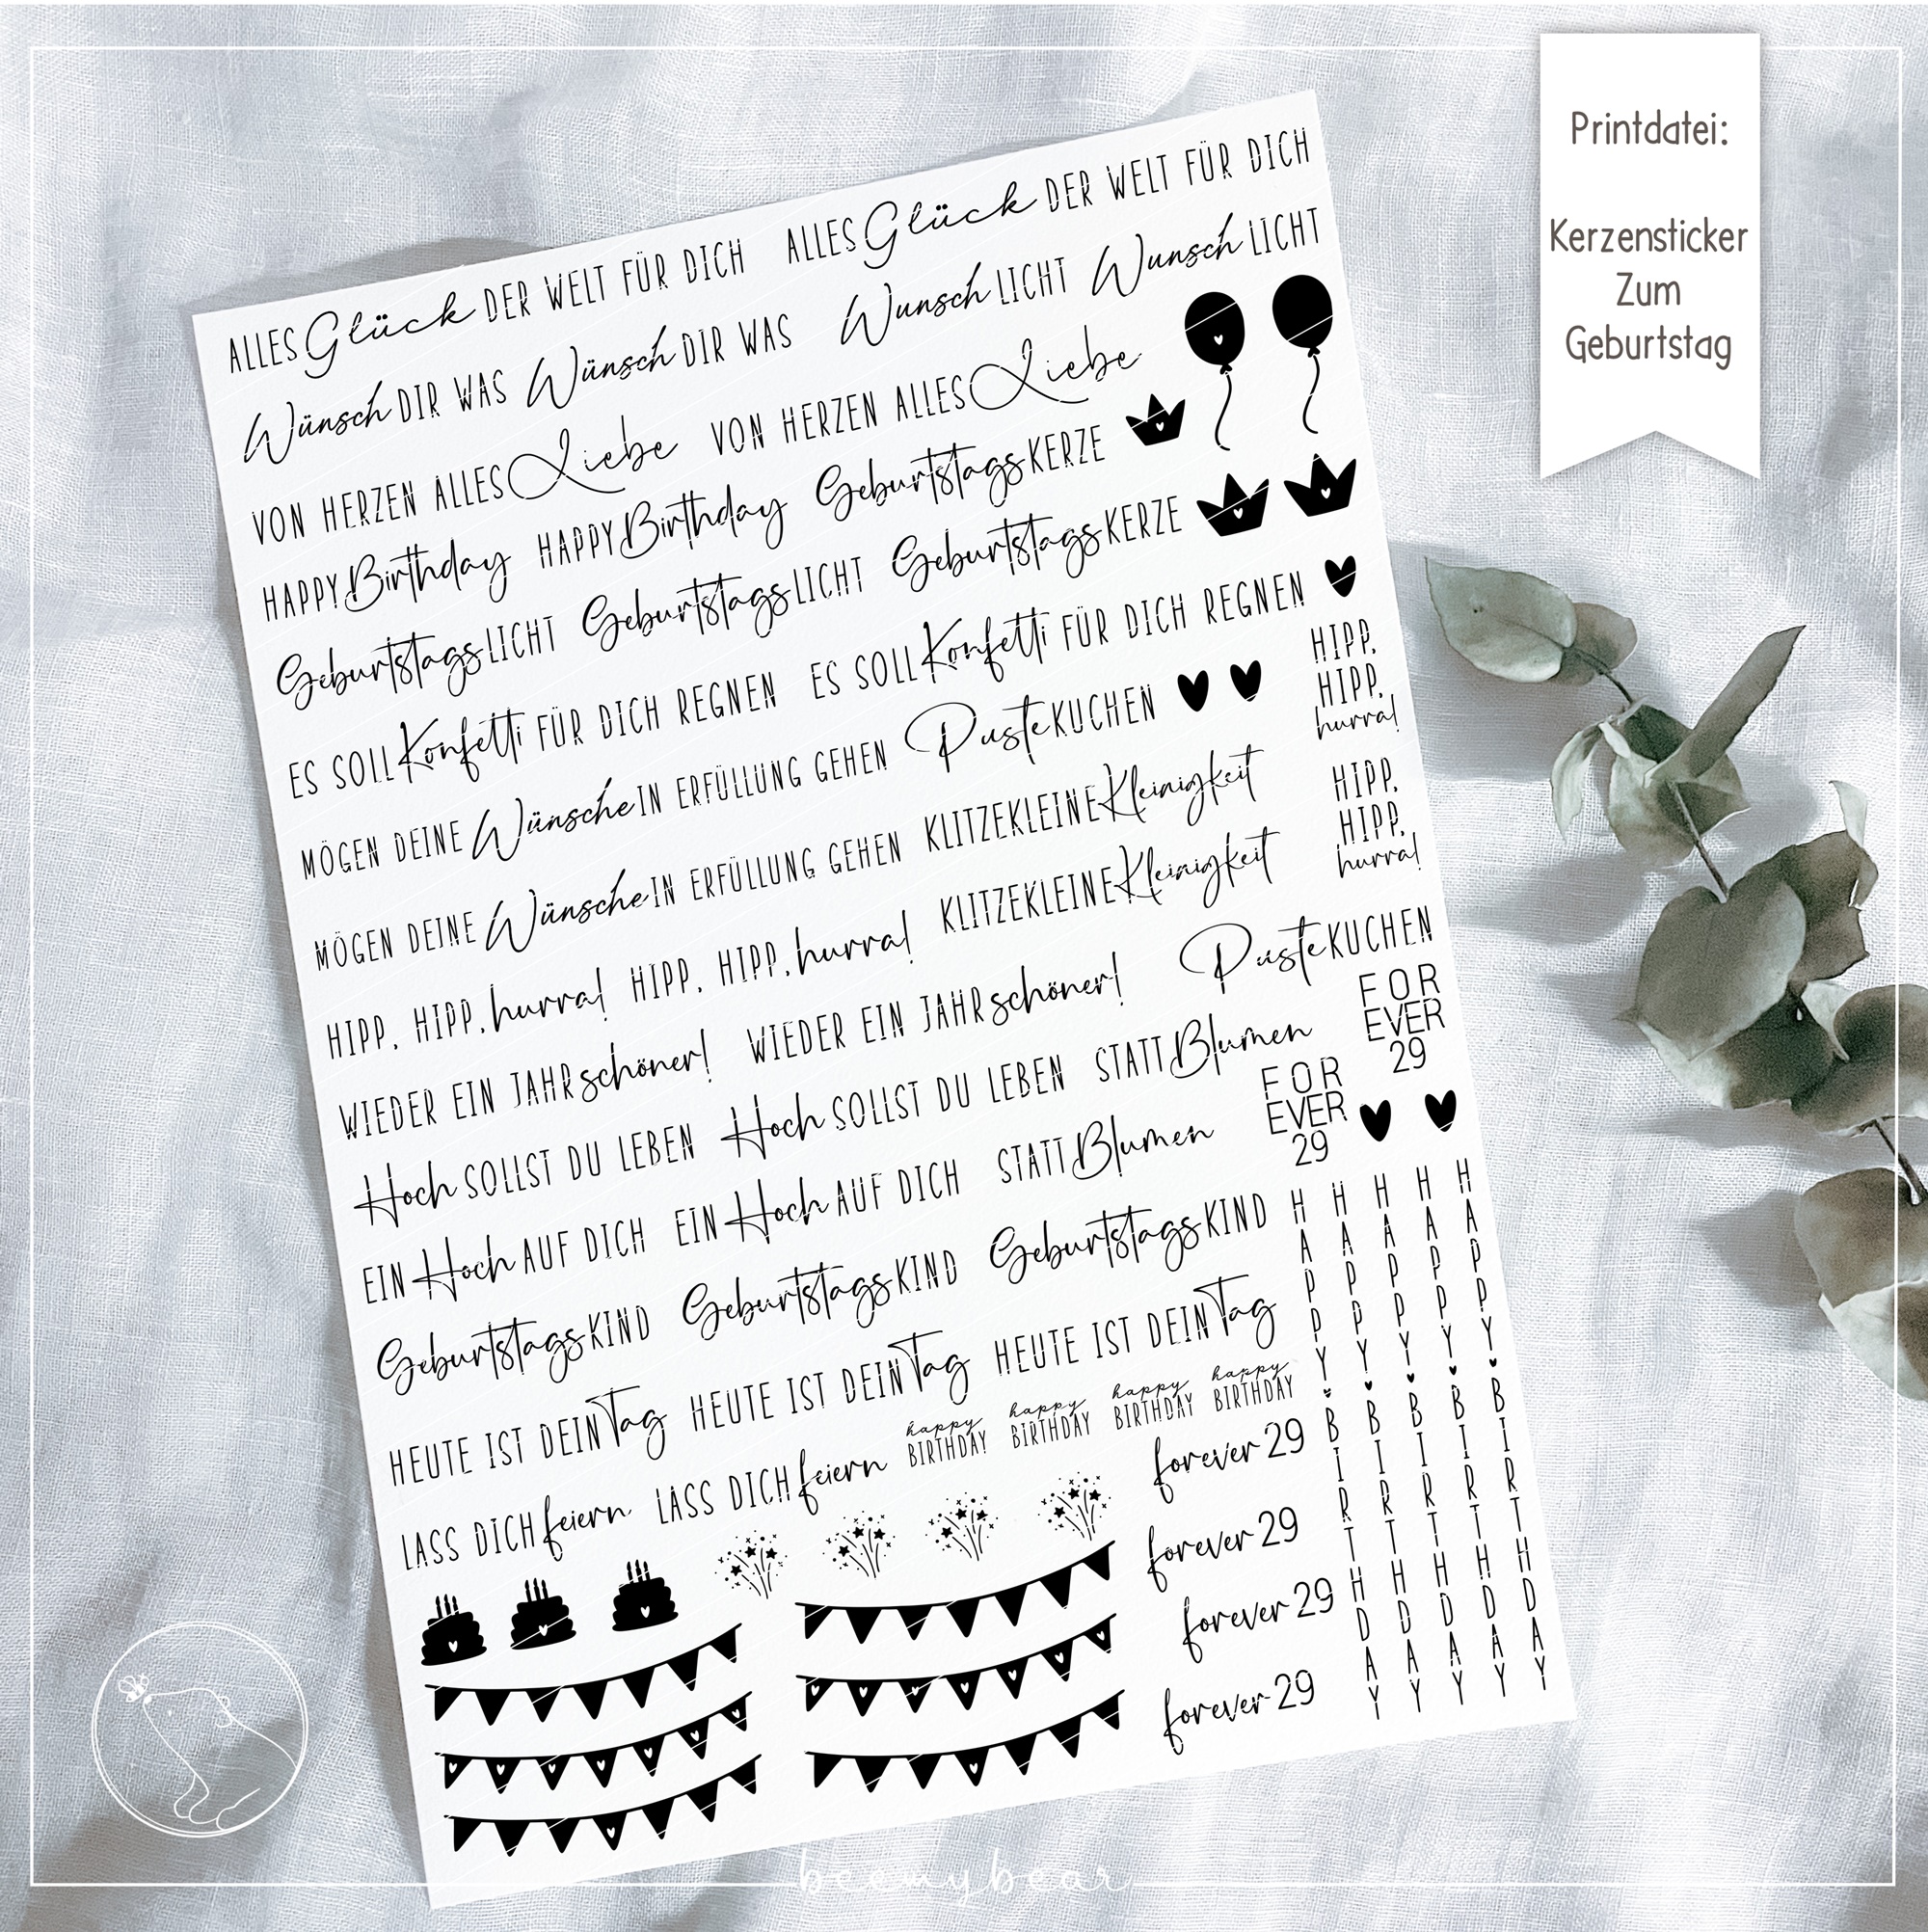 Printdatei:
Kerzensticker
Zum
Geburtstag
ALLES Glück DER WELT FÜR DICH ALLES Glück DER WELT FÜR DICH
Wünsch DIR WAS Wünsch DIR WAS Wunsch LICHT Wunsch LICHT
VON HERZEN ALLES Liebe VON HERZEN ALLES Liebe
HAPPY Birthday HAPPY Birthday GeburtstagsKERZE
GeburtstagsLICHT GeburtstagsLICHT GeburtstagsKERZE
ES SOLL Konfetti FÜR DICH REGNEN ES SOLL Konfetti FÜR DICH REGNEN
MÖGEN DEINE Wünsche IN ERFÜLLUNG GEHEN PusteKUCHEN
HIPP,
HIPP,
hurra!
MÖGEN DEINE Wünsche IN ERFÜLLUNG GEHEN KLITZEKLEINE Kleinigkeit
HIPP,
HIPP,
hurra!
HIPP, HIPP, hurra! HIPP, HIPP, hurra! KLITZEKLEINE Kleinigkeit
WIEDER EIN JAHR schöner! WIEDER EIN JAHR schöner! PusteKUCHEN
Hoch SOLLST DU LEBEN Hoch SOLLST DU LEBEN STATT Blumen
FOR
EVER
29
EIN Hoch AUF DICH EIN Hoch AUF DICH STATT Blumen
FOR
EVER
29
GeburtstagsKIND GeburtstagsKIND GeburtstagsKIND
HEUTE IST DEIN Tag HEUTE IST DEIN Tag HEUTE IST DEIN Tag
LASS DICH feiern LASS DICH feiern
happy
BIRTHDAY
happy
BIRTHDAY
happy
BIRTHDAY
happy
BIRTHDAY
forever 29
forever 29
forever 29
forever 29
HAPPY BIRTHDAY
HAPPY BIRTHDAY
HAPPY BIRTHDAY
HAPPY BIRTHDAY
HAPPY BIRTHDAY
beemybear